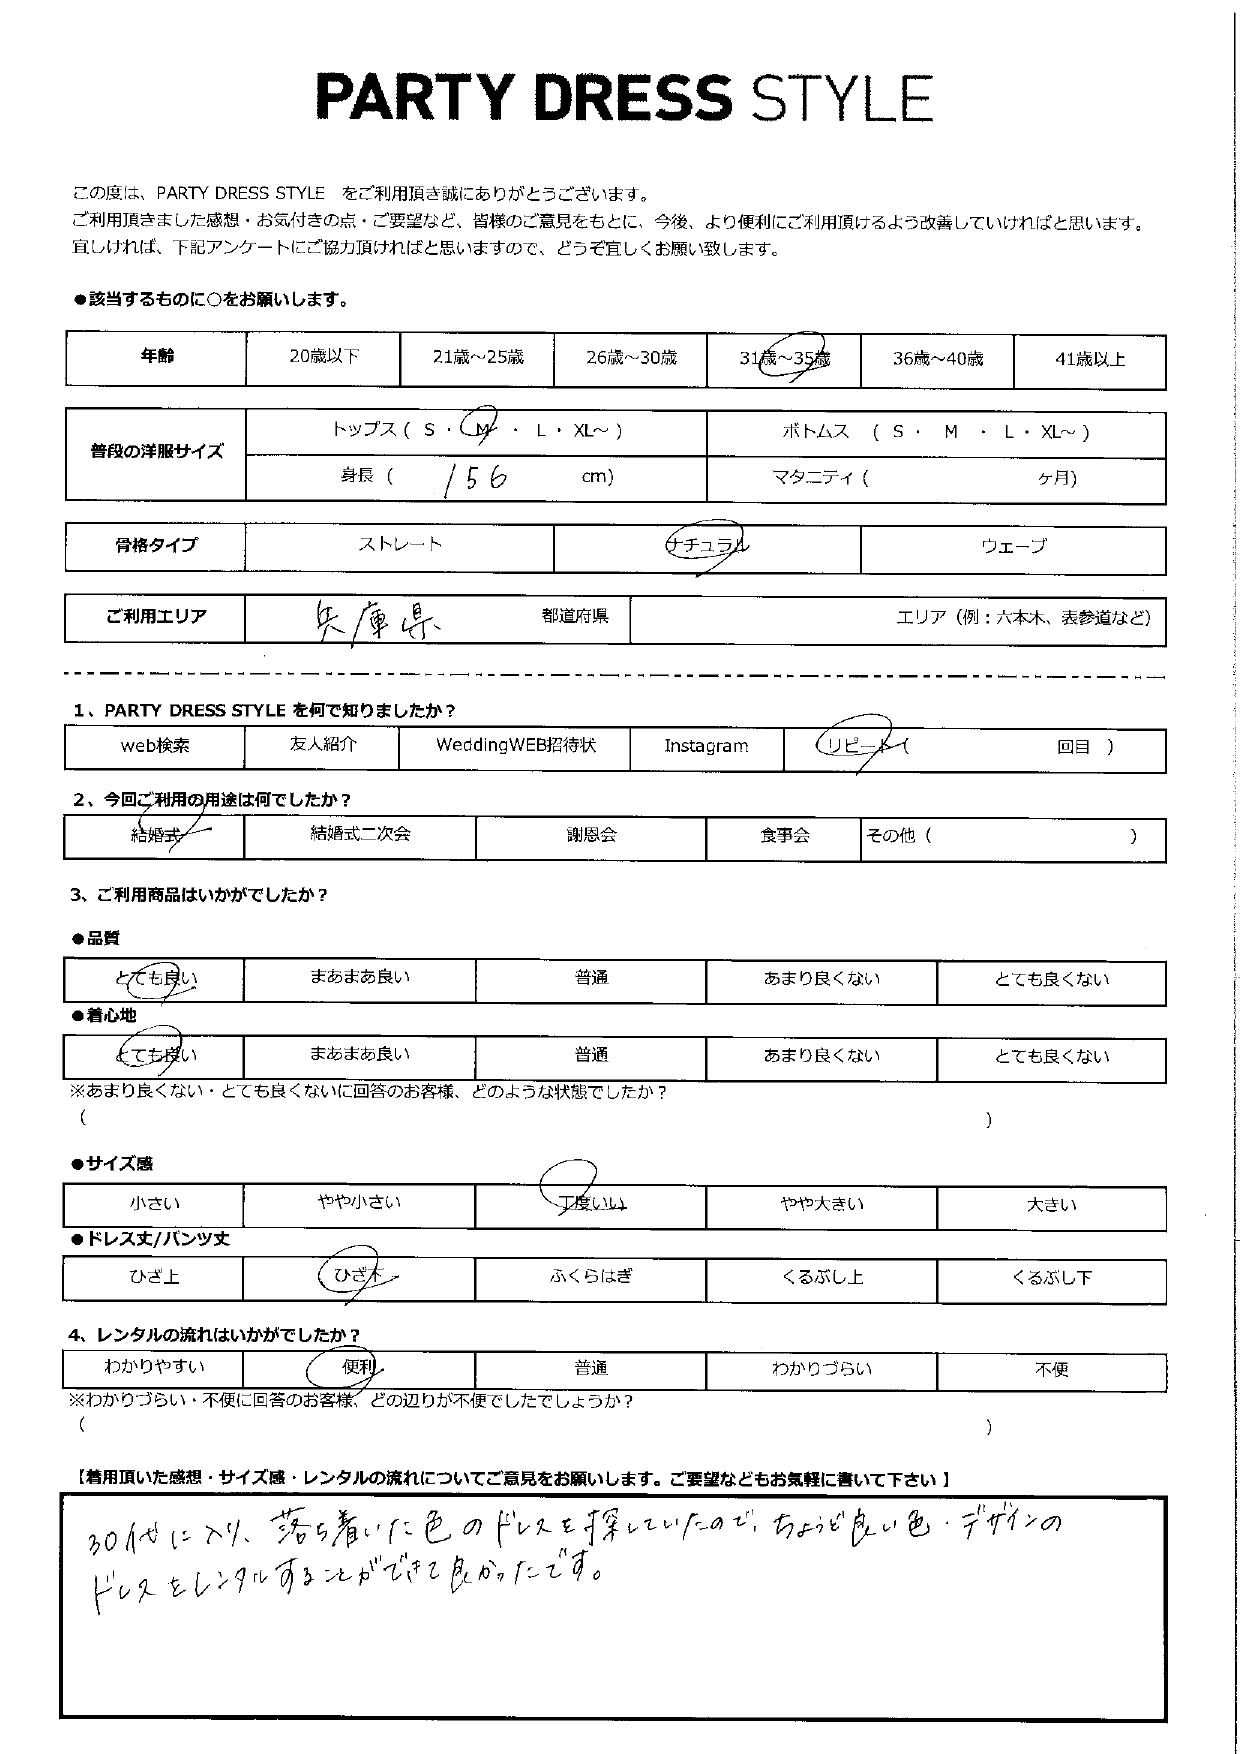 PARTY DRESS STYLE
この度は、PARTY DRESS STYLE をご利用頂き誠にありがとうございます。
ご利用頂きました感想・お気付きの点・ご要望など、皆様のご意見をもとに、今後、より便利にご利用頂けるよう改善していければと思います。
宜しければ、下記アンケートにご協力頂ければと思いますので、どうぞ宜しくお願い致します。
●該当するものに○をお願いします。
年齢 20歳以下 21歳～25歳 26歳～30歳 31歳～35歳 36歳～40歳 41歳以上
普段の洋服サイズ トップス ( S ・ M ・ L ・ XL～ ) ボトムス ( S ・ M ・ L ・ XL～ )
身長 ( 156 cm) マタニティ ( ヶ月)
骨格タイプ ストレート ナチュラル ウェーブ
ご利用エリア 兵庫県 都道府県 エリア（例：六本木、表参道など）
1、PARTY DRESS STYLE を何で知りましたか？
web検索 友人紹介 WeddingWEB招待状 Instagram リピート ( 回目 )
2、今回ご利用の用途は何でしたか？
結婚式 結婚式二次会 謝恩会 食事会 その他 ( )
3、ご利用商品はいかがでしたか？
●品質
とても良い まあまあ良い 普通 あまり良くない とても良くない
●着心地
とても良い まあまあ良い 普通 あまり良くない とても良くない
※あまり良くない・とても良くないに回答のお客様、どのような状態でしたか？
( )
●サイズ感
小さい やや小さい 丁度いい やや大きい 大きい
●ドレス丈/パンツ丈
ひざ上 ひざ下 ふくらはぎ くるぶし上 くるぶし下
4、レンタルの流れはいかがでしたか？
わかりやすい 便利 普通 わかりづらい 不便
※わかりづらい・不便に回答のお客様、どの辺りが不便でしたでしょうか？
( )
【着用頂いた感想・サイズ感・レンタルの流れについてご意見をお願いします。ご要望などもお気軽に書いて下さい 】
30代に入り、落ち着いた色のドレスを探していたので、ちょうど良い色・デザインの
ドレスをレンタルすることができて良かったです。